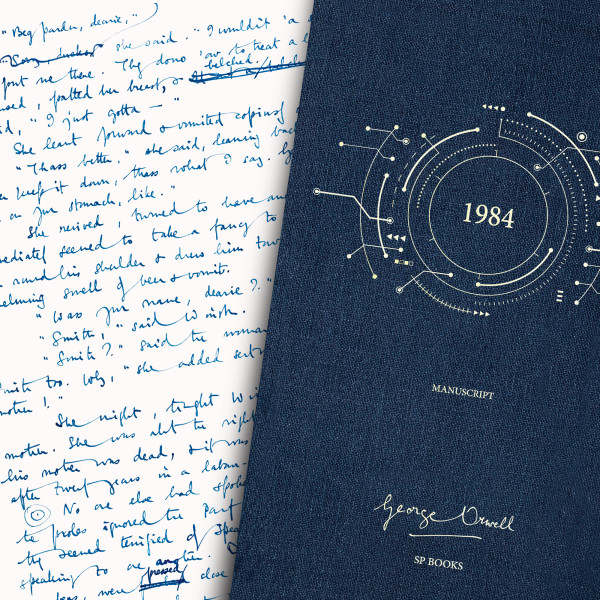 "Beg pardon, dearie,"
she said. "I wouldn't 'a
put me there. They dono 'ow to treat a
belched.
patted her breast, &
"I just gotta — "
She leant forward & vomited copiously
"Thass better." she said, leaning back
keep it down, thass what I say.
on your stomach, like."
She revived, turned to have an
immediately seemed to take a fancy to
round his shoulder & drew him
smell of beer & vomit.
"Wass your name, dearie?"
"Smith," said Winston.
"Smith?" said the woman.
too. Why," she added
mother!"
She might, thought
mother. She was abt the right
his mother was dead,
after twenty years in a labour-
No one else had spoken
proles ignored the Party
they seemed terrified of
speaking to one
any
pressed
were close
1984
MANUSCRIPT
George Orwell
SP BOOKS